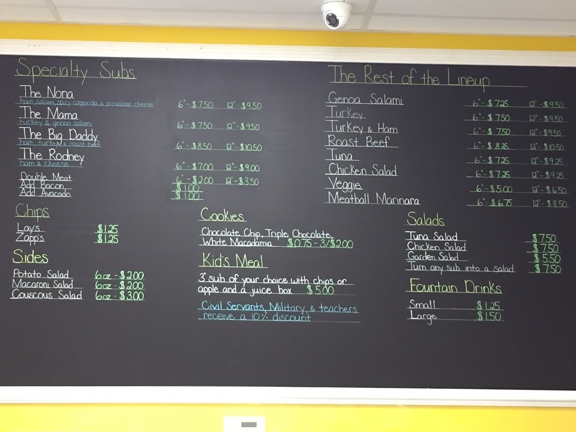 Specialty Subs
The Nona 6"-$7.50 12"-$9.50
Ham, Salami, Spicy Cappicola & provolone cheese
The Mama 6"-$7.50 12"-$9.50
Turkey & genoa salami
The Big Daddy 6"-$8.50 12"-$10.50
Ham, turkey & roast beef
The Rodney 6"-$7.00 12"-$9.00
Ham & Cheese
Double Meat 6"-$2.00 12"-$3.50
Add Bacon $1.00
Add Avocado $1.00
The Rest of the Lineup
Genoa Salami 6"-$7.25 12"-$9.50
Turkey 6"-$7.50 12"-$9.50
Turkey & Ham 6"-$7.50 12"-$9.50
Roast Beef 6"-$8.25 12"-$10.50
Tuna 6"-$7.25 12"-$9.25
Chicken Salad 6"-$7.25 12"-$9.25
Veggie 6"-$5.00 12"-$6.50
Meatball Marinara 6"-$6.75 12"-$8.50
Chips
Lay's $1.25
Zapp's $1.25
Sides
Potato Salad 6oz-$2.00
Macaroni Salad 6oz-$2.00
Couscous Salad 6oz-$3.00
Cookies
Chocolate Chip, Triple Chocolate,
White Macadamia $0.75-3/$2.00
Kid's Meal
3" sub of your choice with chips or
apple and a juice box $5.00
Civil Servants, Military, & teachers
receive a 10% discount
Salads
Tuna Salad $7.50
Chicken Salad $7.50
Garden Salad $5.50
Turn any sub into a salad $7.50
Fountain Drinks
Small $1.25
Large $1.50